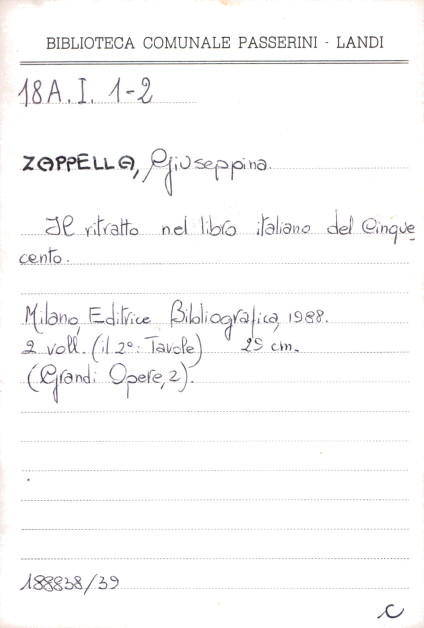 BIBLIOTECA COMUNALE PASSERINI - LANDI
18A. I. 1-2
ZAPPELLA, Giuseppina.
Il ritratto nel libro italiano del Cinque-
cento.
Milano, Editrice Bibliografica, 1988.
2 voll. (il 2°: Tavole) 29 cm.
(Grandi Opere, 2).
188838/39
C